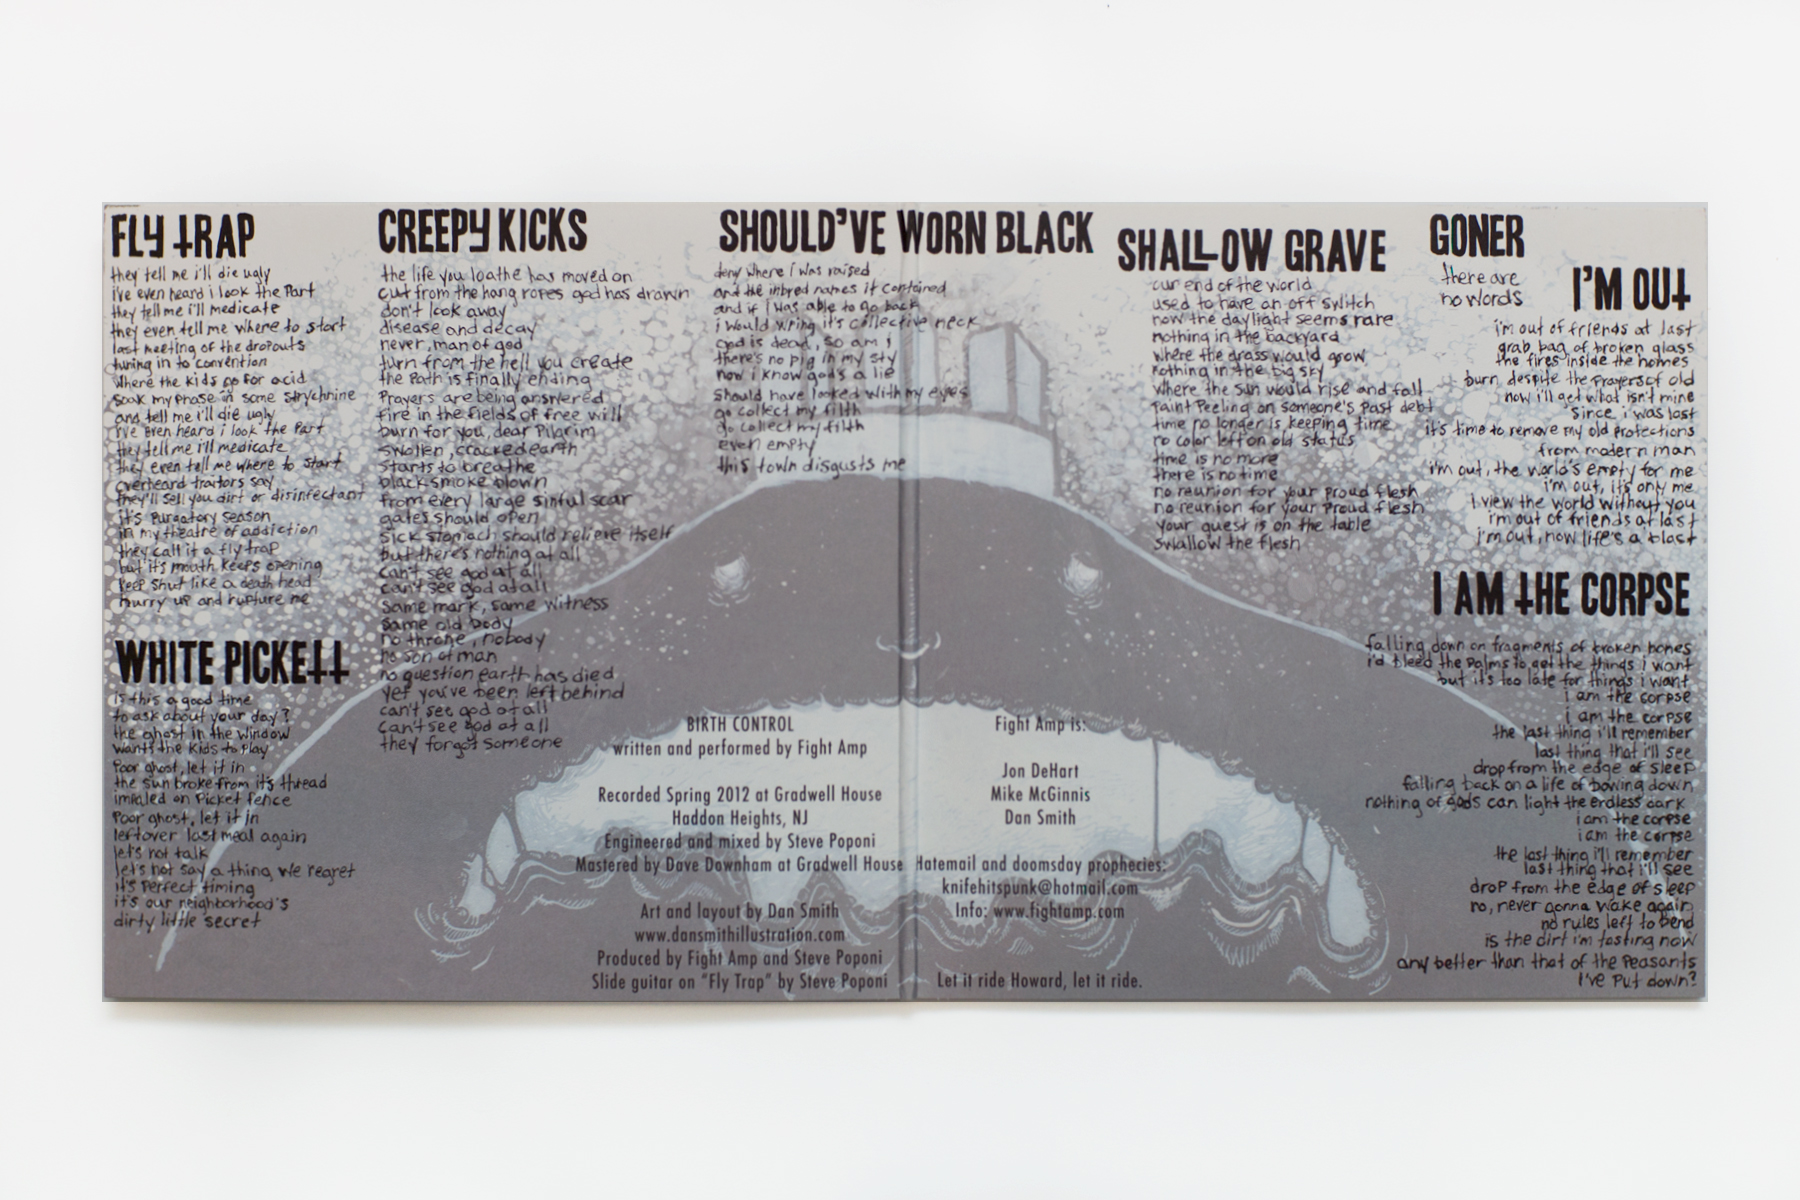 FLY TRAP
they tell me i'll die ugly
i've even heard i look the part
they tell me i'll medicate
they even tell me where to start
last meeting of the dropouts
tuning in to convention
where the kids go for acid
soak my phase in some strychnine
and tell me i'll die ugly
i've even heard i look the part
they tell me i'll medicate
they even tell me where to start
overheard traitors say
they'll sell you dirt or disinfectant
it's purgatory season
in my theatre of addiction
they call it a fly trap
but it's mouth keeps opening
keep shut like a death head
hurry up and rupture me
WHITE PICKETT
Is this a good time
to ask about your day?
the ghost in the window
wants the kids to play
poor ghost, let it in
the sun broke from it's thread
impaled on picket fence
poor ghost, let it in
leftover last meal again
let's not talk
let's not say a thing we regret
it's perfect timing
it's our neighborhood's
dirty little secret
CREEPY KICKS
the life you loathe has moved on
cut from the hang ropes god has drawn
don't look away
disease and decay
never, man of god
turn from the hell you create
the path is finally ending
prayers are being answered
fire in the fields of free will
burn for you, dear pilgrim
swollen, cracked earth
starts to breathe
black smoke blown
from every large sinful scar
gates should open
sick stomach should relieve itself
but there's nothing at all
can't see god at all
can't see god at all
same mark, same witness
same old body
no throne, nobody
no son of man
no question earth has died
yet you've been left behind
can't see god at all
can't see god at all
they forgot someone
SHOULD'VE WORN BLACK
deny where i was raised
and the inbred names it contained
and if i was able to go back
i would wring it's collective neck
god is dead, so am i
there's no pig in my sty
now i know god's a lie
should have looked with my eyes
go collect my filth
go collect my filth
even empty
this town disgusts me
BIRTH CONTROL
written and performed by Fight Amp
Recorded Spring 2012 at Gradwell House
Haddon Heights, NJ
Engineered and mixed by Steve Poponi
Mastered by Dave Downham at Gradwell House
Art and layout by Dan Smith
www.dansmithillustration.com
Produced by Fight Amp and Steve Poponi
Slide guitar on "Fly Trap" by Steve Poponi
Fight Amp is:
Jon DeHart
Mike McGinnis
Dan Smith
Hatemail and doomsday prophecies:
knifehitspunk@hotmail.com
Info: www.fightamp.com
Let it ride Howard, let it ride.
SHALLOW GRAVE
our end of the world
used to have an off switch
now the daylight seems rare
nothing in the backyard
where the grass would grow
nothing in the big sky
where the sun would rise and fall
paint peeling on someone's past debt
time no longer is keeping time
no color left on old status
time is no more
there is no time
no reunion for your proud flesh
no reunion for your proud flesh
your guest is on the table
swallow the flesh
GONER
there are
no words
I'M OUT
i'm out of friends at last
grab bag of broken glass
the fires inside the homes
burn despite the prayers of old
now i'll get what isn't mine
since i was lost
it's time to remove my old protections
from modern man
i'm out, the world's empty for me
i'm out, it's only me
I view the world without you
i'm out of friends at last
i'm out, now life's a blast
I AM THE CORPSE
falling down on fragments of broken bones
i'd bleed the palms to get the things i want
but it's too late for things i want
i am the corpse
i am the corpse
the last thing i'll remember
last thing that i'll see
drop from the edge of sleep
falling back on a life of bowing down
nothing of gods can light the endless dark
i am the corpse
i am the corpse
the last thing i'll remember
last thing that i'll see
drop from the edge of sleep
no, never gonna wake again
no rules left to bend
is the dirt i'm tasting now
any better than that of the peasants
I've put down?